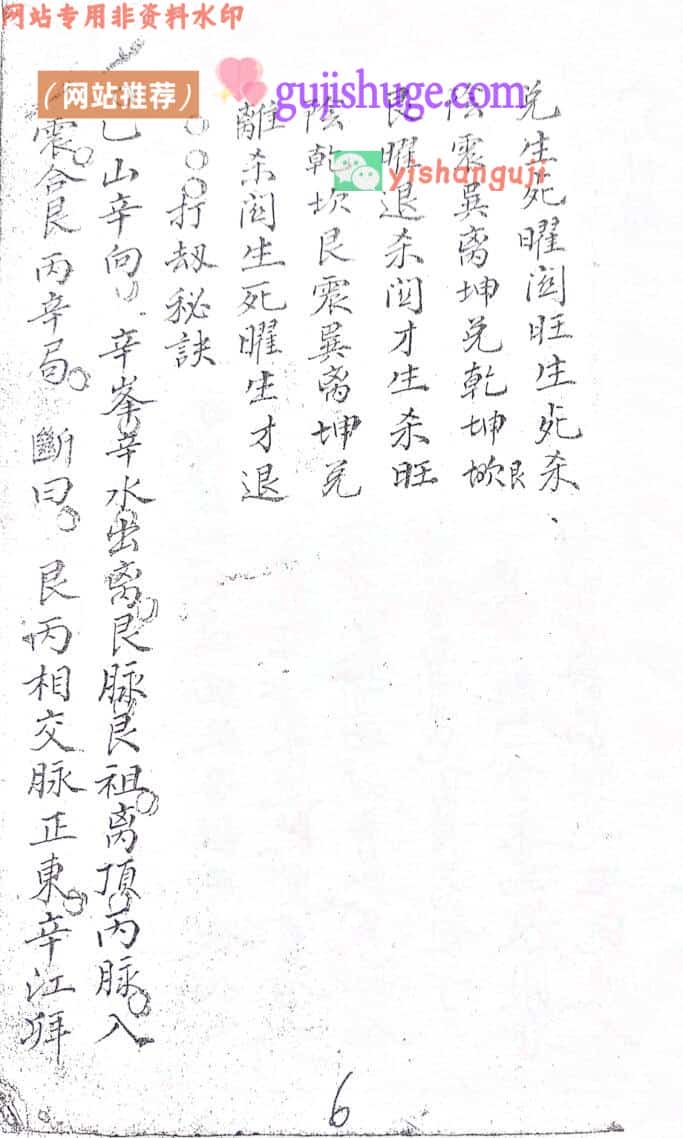 网站专用非资料水印
（网站推荐）
gujishuge.com
yishanguji
兑生死曜闰旺生死杀、
陰震巽离坤兑乾坤坎艮
艮曜退杀闰才生杀旺
陰乾坎艮震巽离坤兑
離杀闰生死曜生才退
○○○打劫秘訣
山辛向。辛峯辛水出离。艮脉艮祖。离頂丙脉。入
震。合艮丙辛局。斷曰。艮丙相交脉正東。辛江拜
6